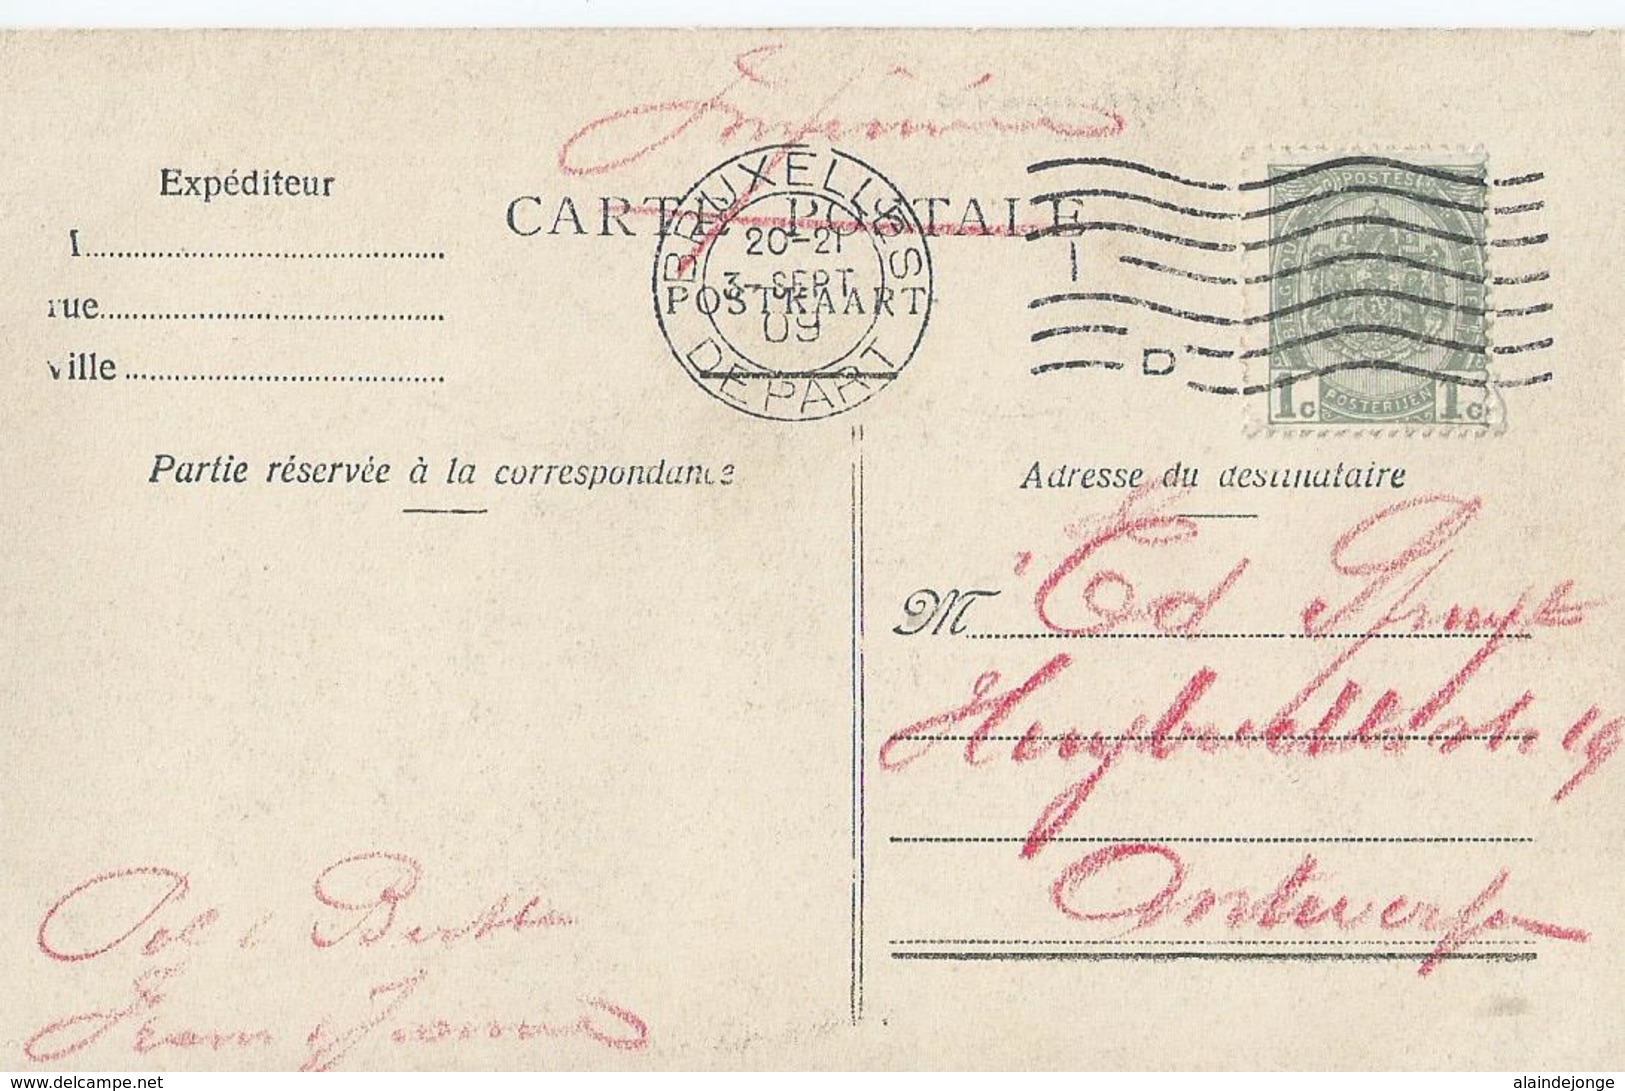 Expéditeur
CARTE POSTALE
BRUXELLES
20-21
3-SEPT
09
DEPART
POSTKAART
rue
ville
POSTES
POSTERIJEN
1c 1c
D
Partie réservée à la correspondance
Adresse du destinataire
M Ed Spruyt
19
Antwerpen
Bertha
Jean &
www.delcampe.net
alaindejonge